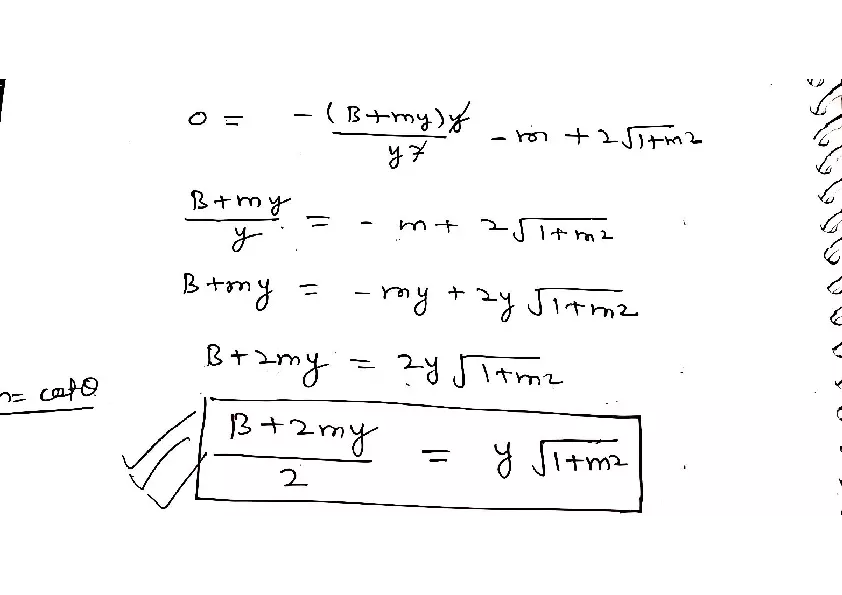 0 = - (B+my)y / y² - m + 2√1+m2
B+my / y = - m + 2√1+m2
B+my = - my + 2y √1+m2
B+2my = 2y √1+m2
m= cotθ
B+2my / 2 = y √1+m2